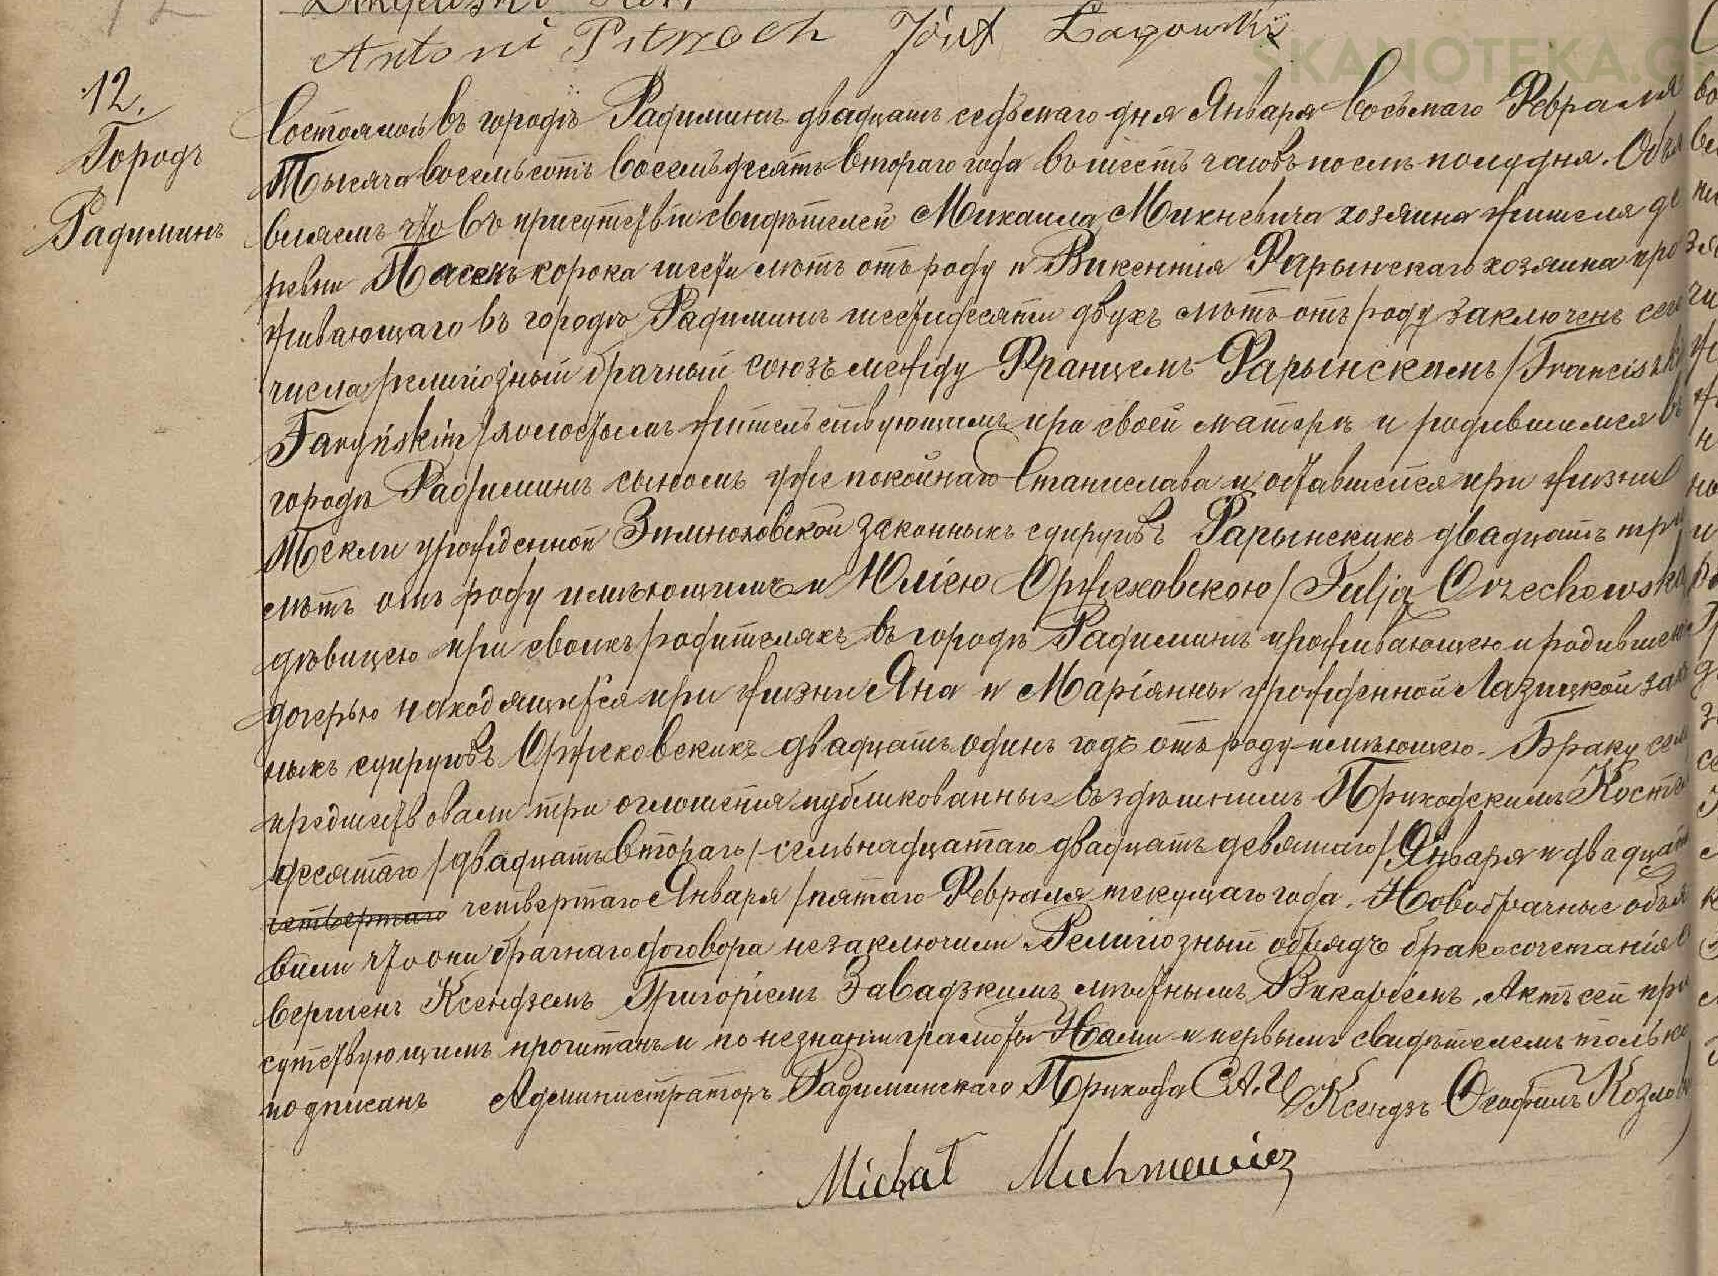 Antoni Pietrzach Józef Łagowski
SKANOTEKA.G
12.
Городъ
Радиминъ
Состоялось въ городѣ Радиминѣ двадцать седьмаго дня Января восьмаго Февраля
Тысяча восемьсотъ восемьдесятъ втораго года въ шесть часовъ послѣ полудня. Объя
вляемъ что въ присутствіи свидѣтелей Михаила Михневича хозяина жителя де
ревни Пасекъ сорока шести лѣтъ отъ роду и Викентія Фарынскаго хозяина про
живающаго въ городѣ Радиминѣ шестидесяти двухъ лѣтъ отъ роду заключенъ сего
числа религіозный брачный союзъ между Францемъ Фарынскимъ /Franciszk
Faryński/ холостымъ жительствующимъ при своей матери и родившимся въ
городѣ Радиминѣ сыномъ уже покойнаго Станислава и оставшейся при жизни
Текли урожденной Зимноховской законныхъ супруговъ Фарынскихъ двадцать три
лѣтъ отъ роду имѣющимъ и Юліею Оржеховскою /Julja Orzechowska
дѣвицею при своихъ родителяхъ въ городѣ Радиминѣ проживающею и родившею
дочерью находящихся при жизни Яна и Маріянны урожденной Лазицкой зак
ныхъ супруговъ Оржеховскихъ двадцать одинъ годъ отъ роду имѣющею. Браку сем
предшествовали три оглашенія публикованные въ здѣшнемъ Приходскимъ Косте
десятаго /двадцать втораго/ семьнадцатаго двадцать девятаго/ Января и двадцать
четвертаго четвертаго Января /пятаго Февраля текущаго года. Новобрачные объя
вили что они брачнаго договора незаключили Религіозный обрядъ бракосочетанія с
вершенъ Ксендземъ Григоріемъ Завадзкимъ мѣстнымъ Викаріемъ. Актъ сей при
сутствующимъ прочитанъ и по незнанію грамоты Нами и первымъ свидѣтелемъ только
подписанъ Администраторъ Радиминскаго Прихода С.А.Ч Ксендзъ Ѳеофилъ Козло
Michał Michniewicz